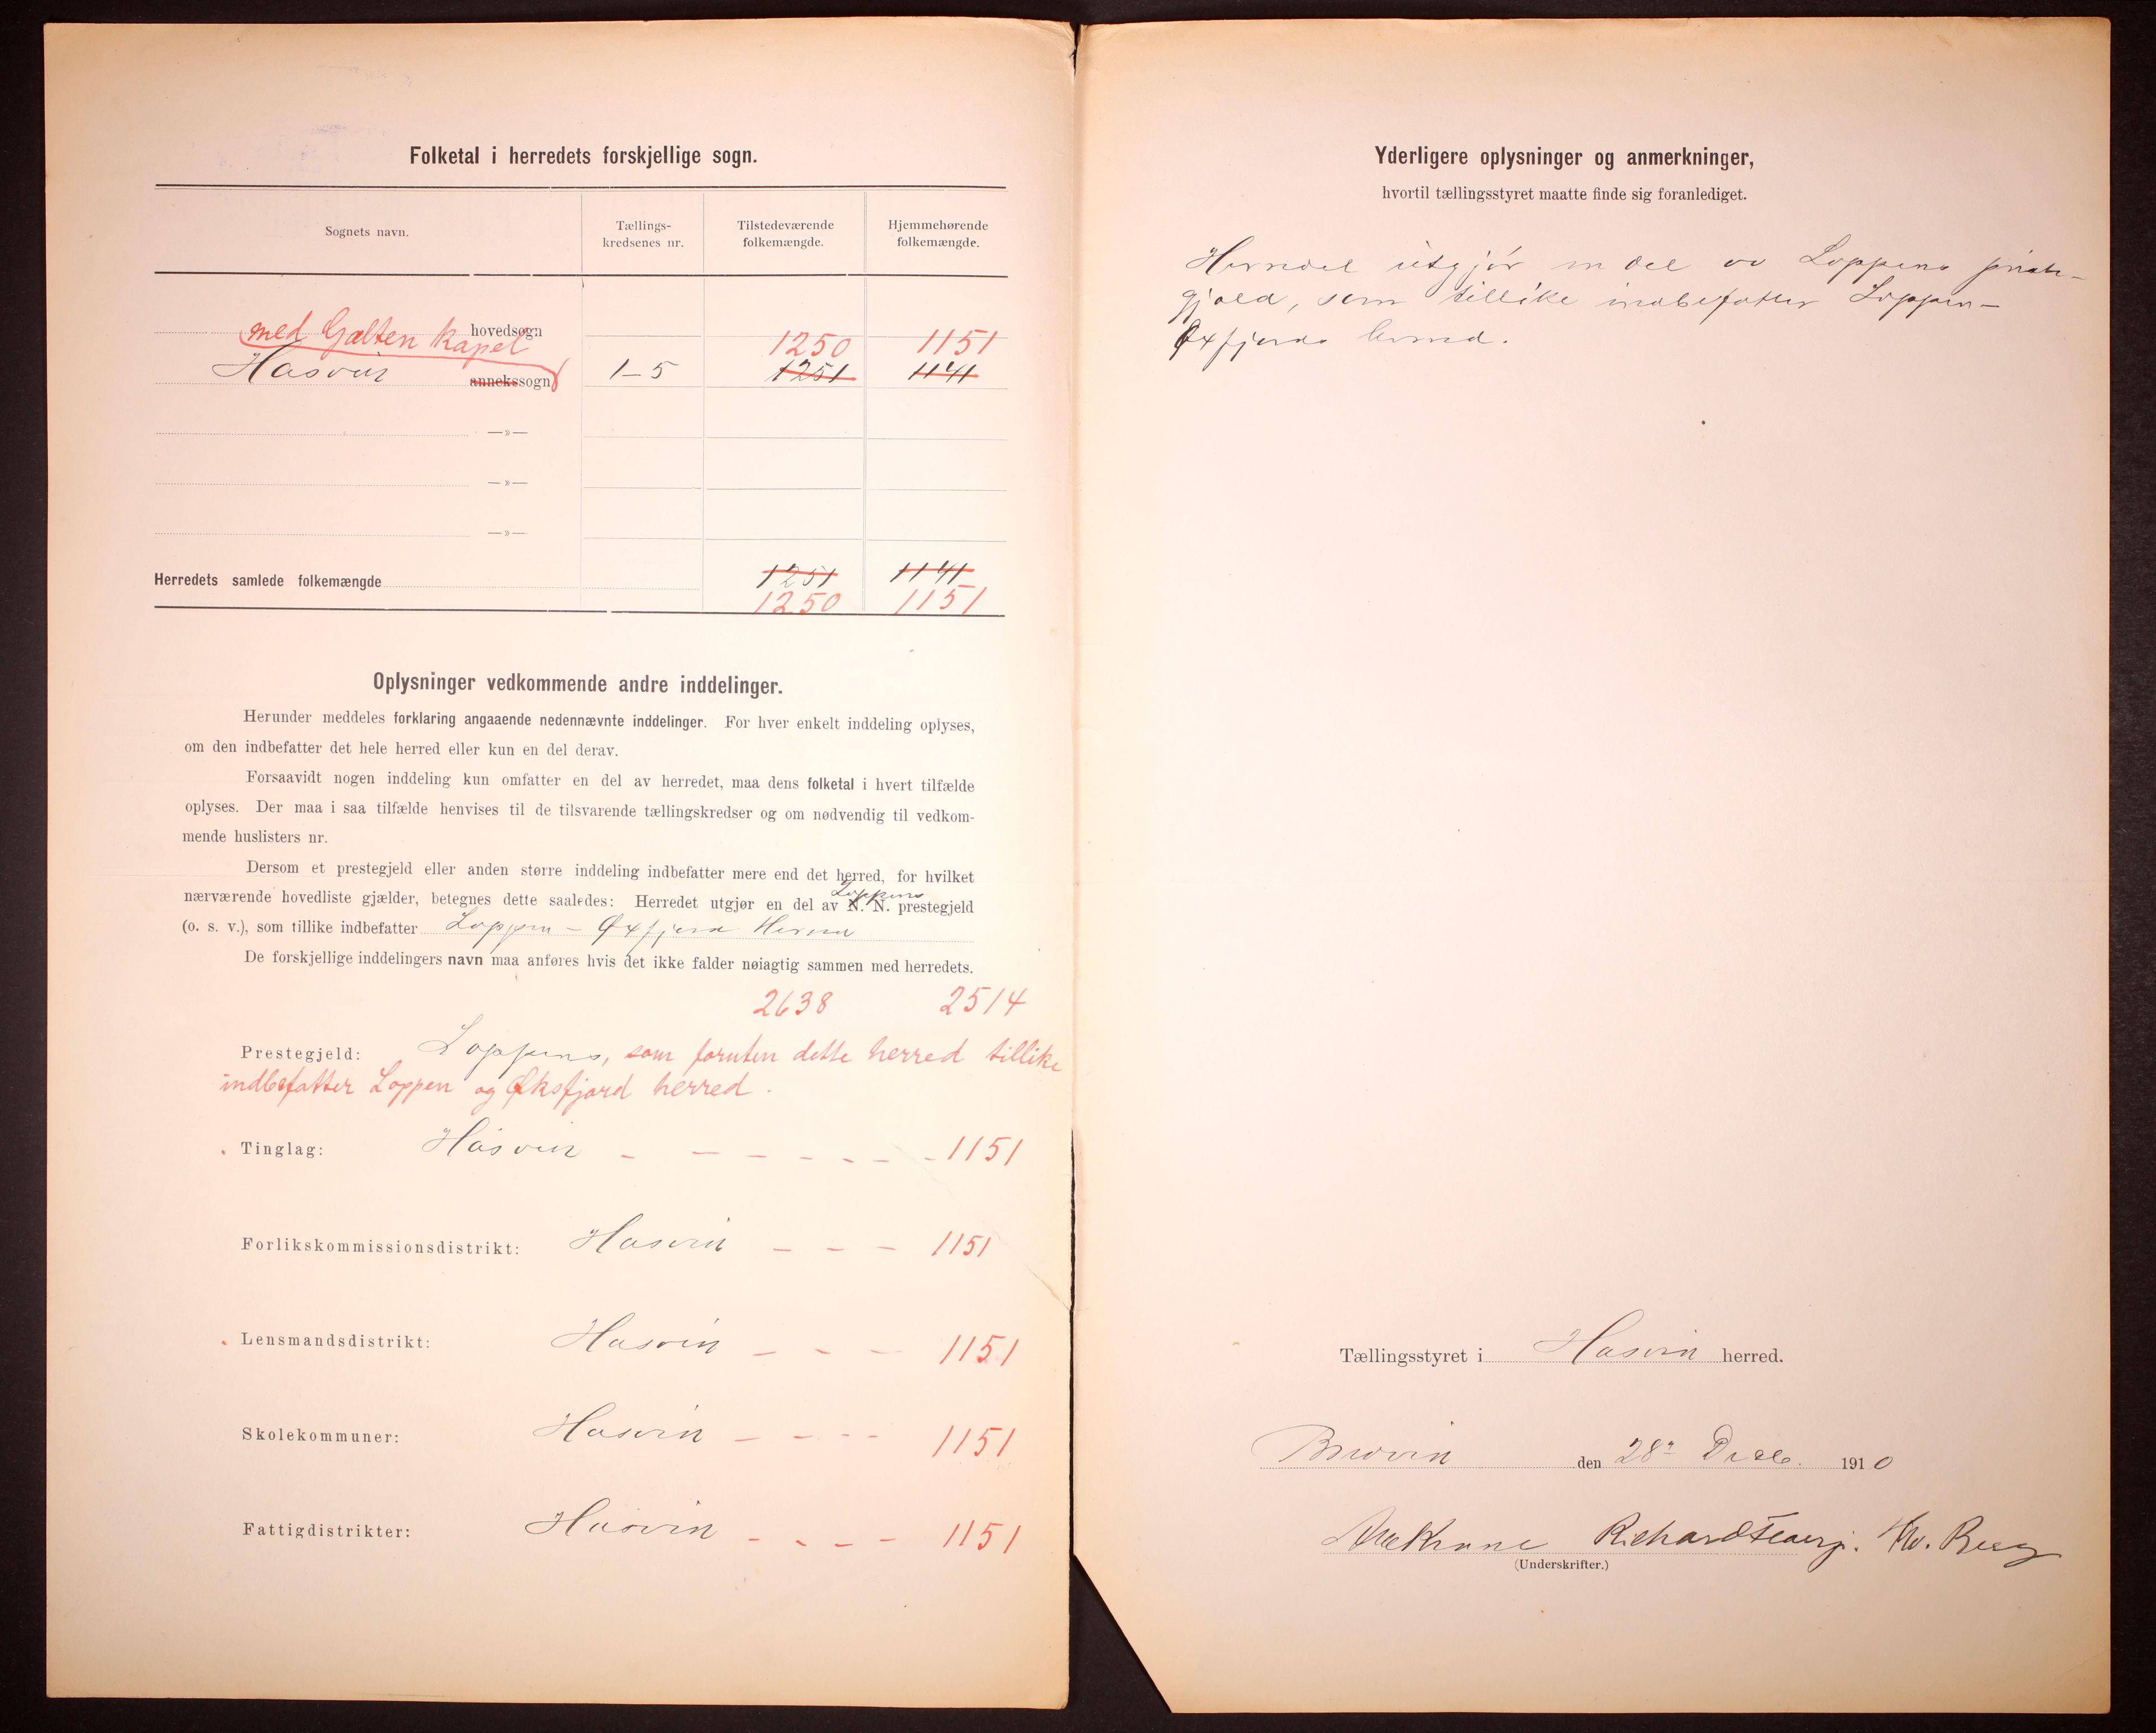 Folketal i herredets forskjellige sogn.
Sognets navn.
Tællings-
kredsenes nr.
Tilstedeværende
folkemængde.
Hjemmehørende
folkemængde.
hovedsogn
med Galten kapel 1250 1151
Hasvik annekssogn 1-5 1251 1141
—»—
—»—
—»—
Herredets samlede folkemængde 1251 1141
1250 1151
Oplysninger vedkommende andre inddelinger.
Herunder meddeles forklaring angaaende nedennævnte inddelinger. For hver enkelt inddeling oplyses,
om den indbefatter det hele herred eller kun en del derav.
Forsaavidt nogen inddeling kun omfatter en del av herredet, maa dens folketal i hvert tilfælde
oplyses. Der maa i saa tilfælde henvises til de tilsvarende tællingskredser og om nødvendig til vedkom-
mende huslisters nr.
Dersom et prestegjeld eller anden større inddeling indbefatter mere end det herred, for hvilket
Loppens
nærværende hovedliste gjælder, betegnes dette saaledes: Herredet utgjør en del av N. N. prestegjeld
(o. s. v.), som tillike indbefatter Loppen - Øxfjord Herred
De forskjellige inddelingers navn maa anføres hvis det ikke falder nøiagtig sammen med herredets.
2638 2514
Prestegjeld: Loppens, som foruten dette herred tillike
indbefatter Loppen og Øksfjord herred.
Tinglag: Hasvik - - - - - - - 1151
Forlikskommissionsdistrikt: Hasvik - - - 1151
Lensmandsdistrikt: Hasvik - - - 1151
Skolekommuner: Hasvik - - - - 1151
Fattigdistrikter: Hasvik - - - - 1151
Yderligere oplysninger og anmerkninger,
hvortil tællingsstyret maatte finde sig foranlediget.
Herredet utgjør en del av Loppens preste-
gjeld, som tillike indbefatter Loppen-
Øxfjords herred.
Tællingsstyret i Hasvik herred.
den 28de Decb. 1910
Richard
(Underskrifter.)